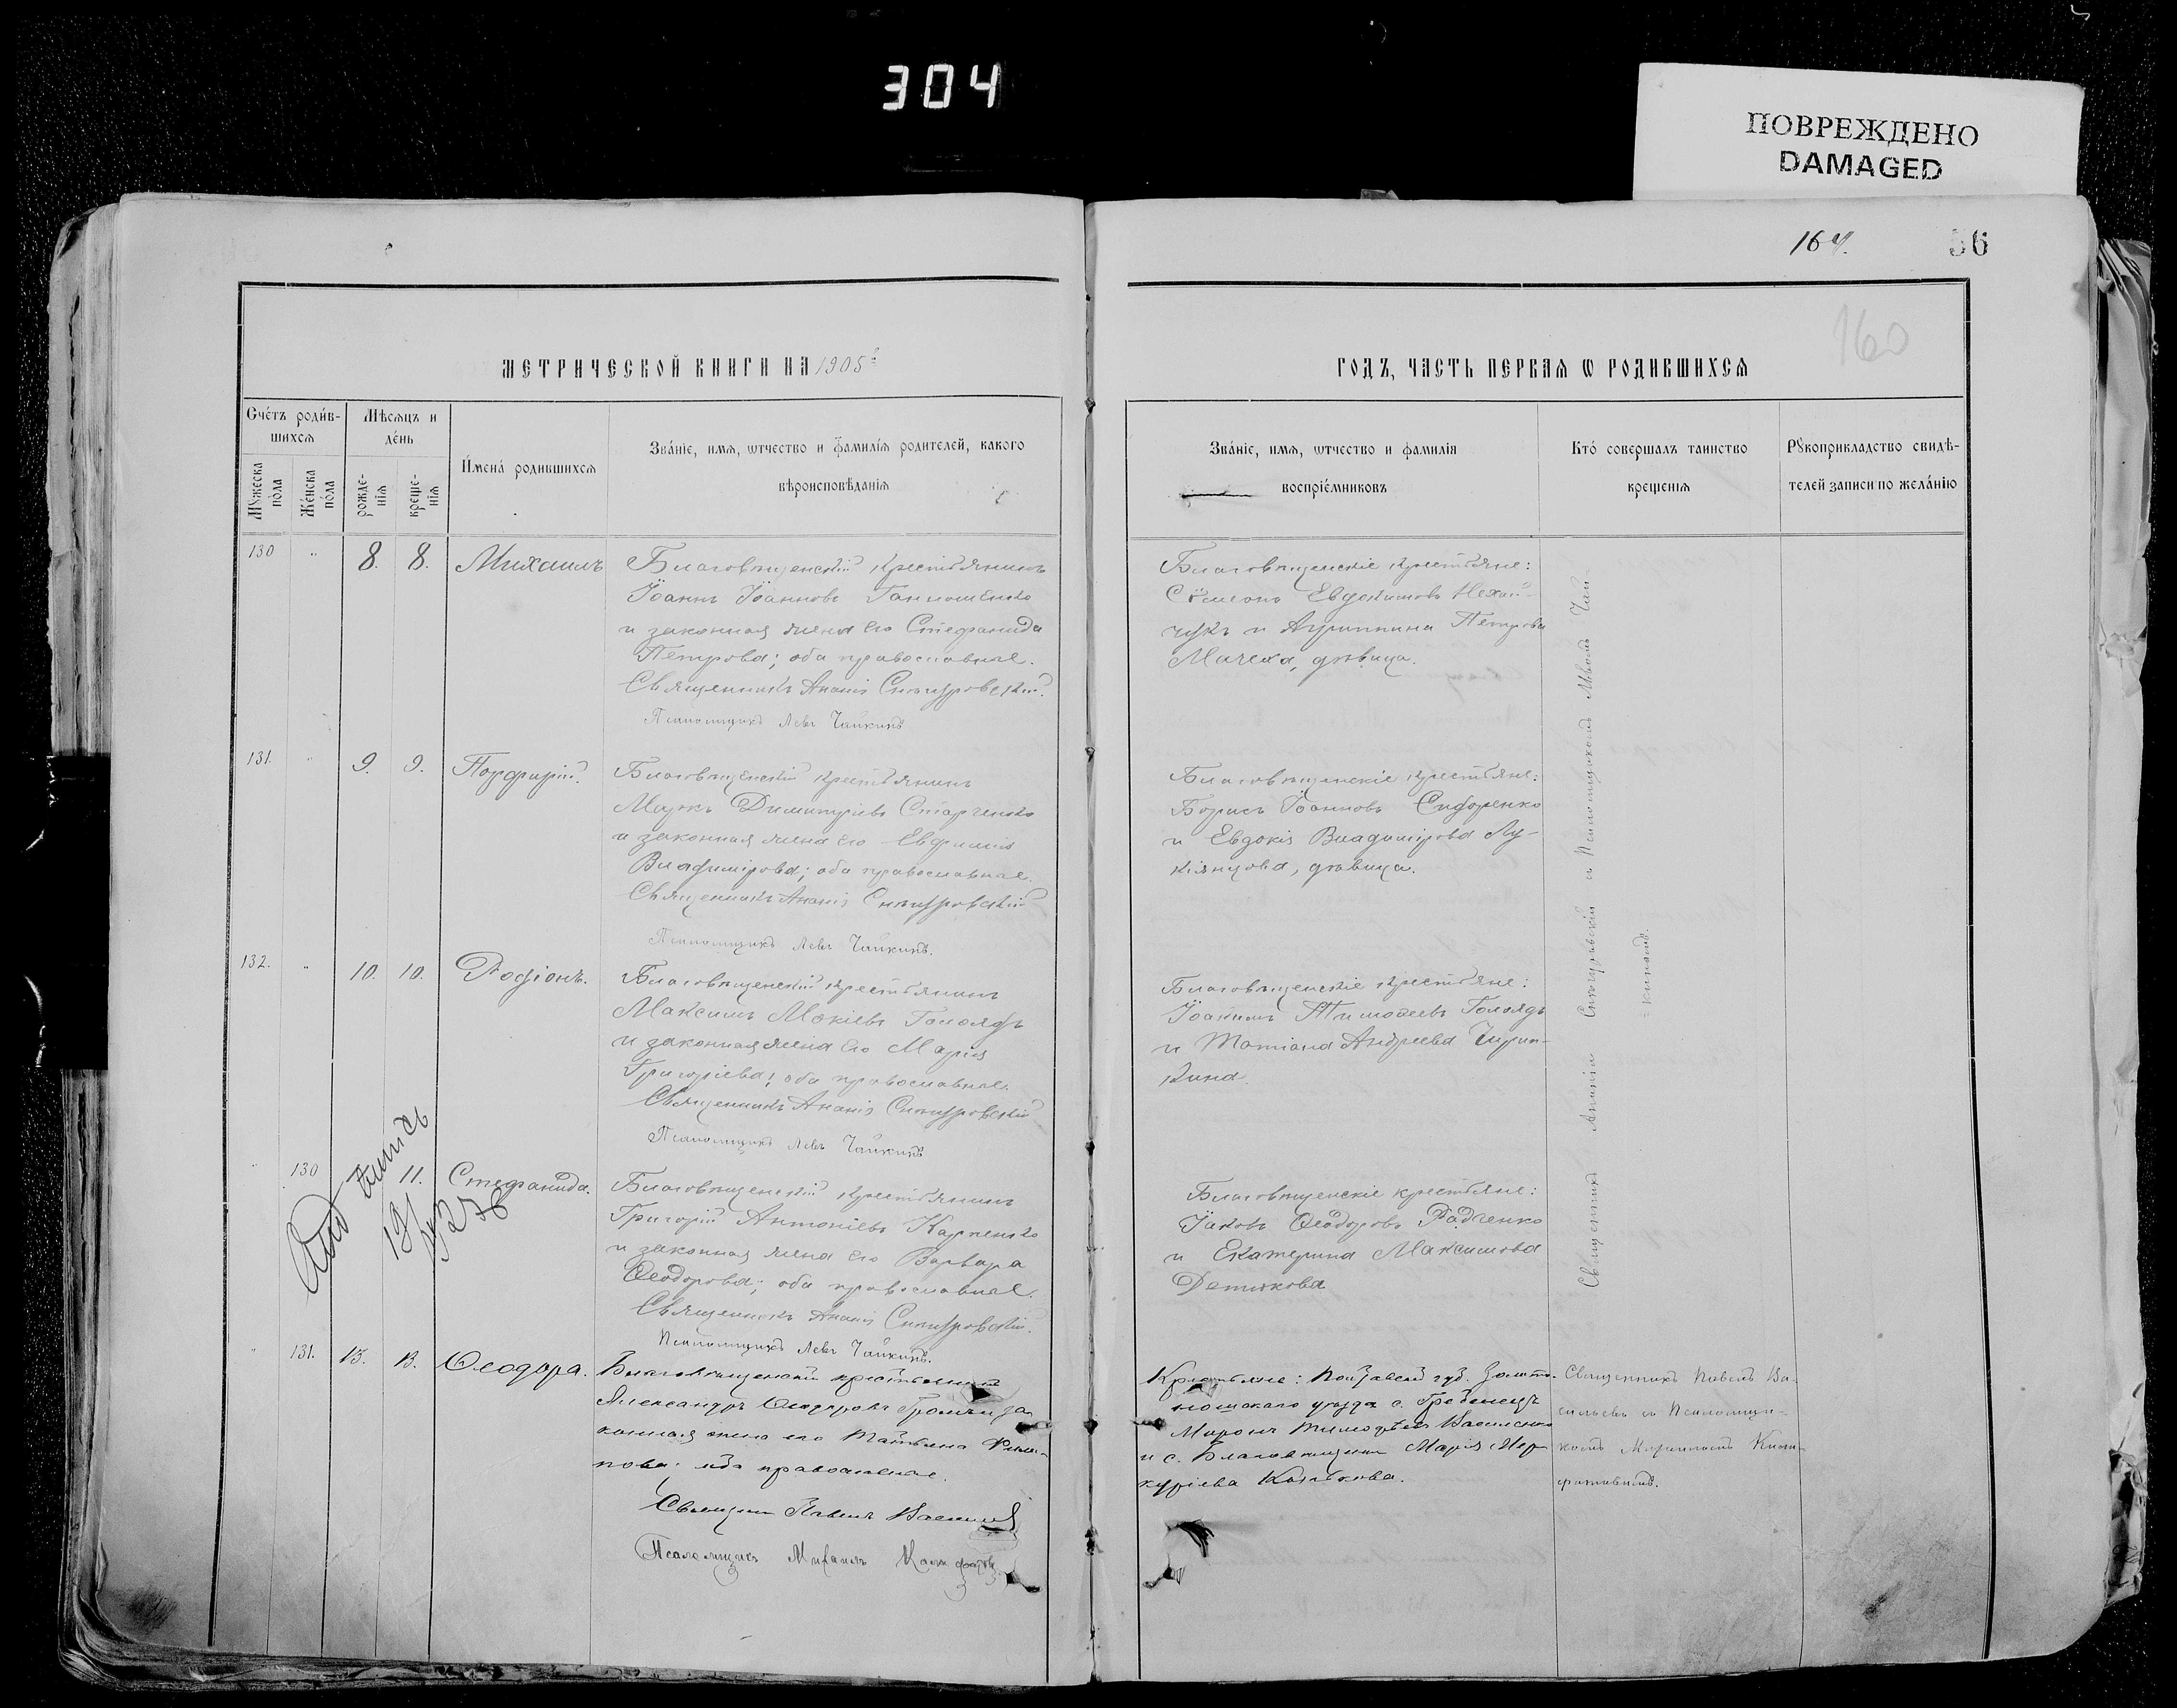 304
ПОВРЕЖДЕНО
DAMAGED
164.
56
160
МЕТРИЧЕСКОЙ КНИГИ НА 1905 г
ГОДЪ, ЧАСТЬ ПЕРВАЯ Ѡ РОДИВШИХСЯ
Счетъ родив-
шихся
Мужеска
пола
Женска
пола
Мѣсяцъ и
день
рожде-
нія
креще-
нія
Имена родившихся
Званіе, имя, ѡтчество и фамилія родителей, какого
вѣроисповѣданія
Званіе, имя, ѡтчество и фамилія
воспріемниковъ
Кто совершалъ таинство
крещенія
Рукоприкладство свидѣ-
телей записи по желанію
130 " 8. 8. Михаилъ
Благовѣщенскій крестьянинъ
Іоаннъ Іоанновъ Ганношенко
и законная жена его Стефанида
Петрова; оба православные.
Священникъ Ананій
Псаломщикъ Левъ Чайкинъ
Благовѣщенскіе крестьяне:
Сѵмеонъ Евдокимовъ Нехай-
чукъ и Агриппина Петрова
Мачеха, дѣвица.
131. " 9. 9. Порфирій.
Благовѣщенскій крестьянинъ
Маркъ Димитріевъ Старченко
и законная жена его Евфимія
Владимірова; оба православные.
Священникъ Ананій
Псаломщикъ Левъ Чайкинъ.
Благовѣщенскіе крестьяне:
Борисъ Іоанновъ Сидоренко
и Евдокія Владимірова Лу-
кіянцова, дѣвица.
132. " 10. 10. Родіонъ.
Благовѣщенскій крестьянинъ
Максимъ Мокіевъ Голоядъ
и законная жена его Марія
Григоріева; оба православные.
Священникъ Ананій
Псаломщикъ Левъ Чайкинъ
Благовѣщенскіе крестьяне:
Іоакимъ Тимоѳеевъ Голоядъ
и Татіана Андреева Чирип-
кина.
" 130 11. Стефанида.
Благовѣщенскій крестьянинъ
Григорій Антоніевъ Карпенко
и законная жена его Варвара
Ѳеодорова; оба православные.
Священникъ Ананій
Псаломщикъ Левъ Чайкинъ.
Благовѣщенскіе крестьяне:
Іаковъ Ѳеодоровъ Радченко
и Екатерина Максимова
Детикова
Священникъ Ананій съ Псаломщикомъ Львомъ Чай-
кинымъ.
" 131. 13. 13. Ѳеодора.
Благовѣщенскій крестьянинъ
Александръ Ѳеодоровъ и за
конная жена его Татьяна Фили-
пова; оба православные.
Священникъ Павелъ Васильевъ
Псаломщикъ Михаилъ
Крестьяне: Полтавской губ. Золото-
ношскаго уѣзда с.
Миронъ Тимоѳѣевъ Василенко
и с. Благовѣщенки Марія Мер-
куріева
Священникъ Павелъ Ва-
сильевъ съ Псаломщи-
комъ